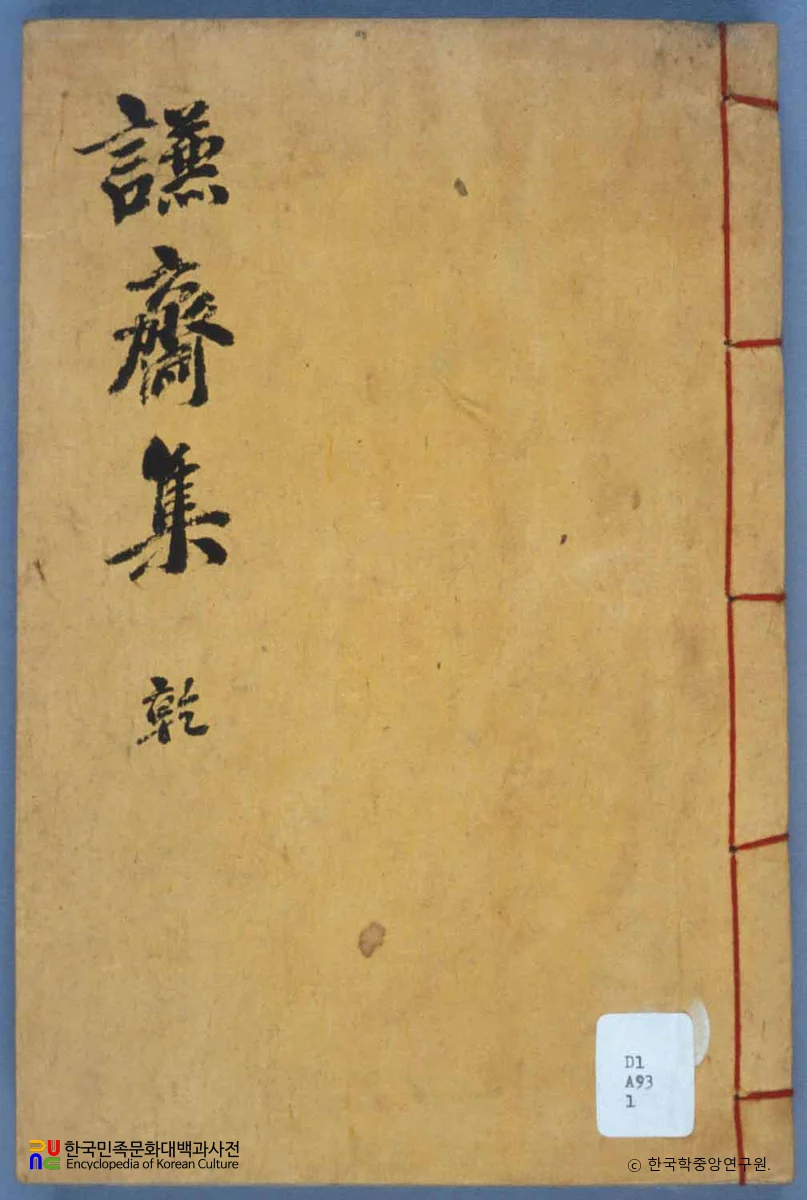 謙齋集
乾
D1
A93
1
한국민족문화대백과사전
Encyclopedia of Korean Culture
ⓒ 한국학중앙연구원.